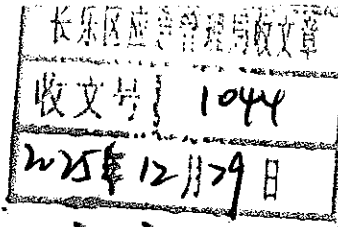 长乐区应急管理局收文章
收文号 1044
2025年12月29日